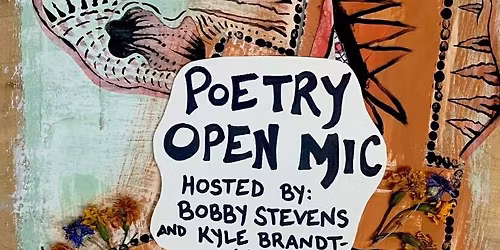 POETRY
OPEN MIC
HOSTED BY:
BOBBY STEVENS
AND KYLE BRANDT-